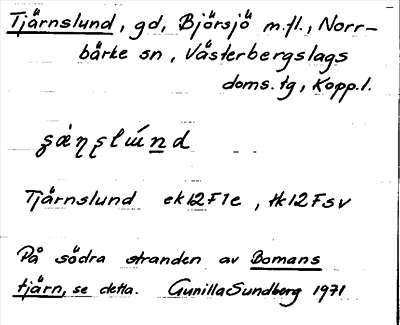 Tjärnslund, gd, Björsjö m.fl., Norr-
bärke sn, Västerbergslags
doms. tg, Kopp.l.
Tjärnslund ek12F1e, tk12Fsv
På södra stranden av Bomans
tjärn, se detta. Gunilla Sundberg 1971